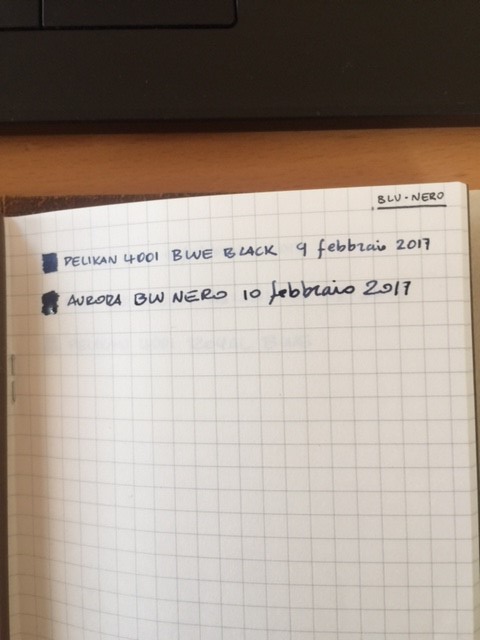 BLU-NERO
PELIKAN 4001 BLUE BLACK 9 febbraio 2017
AURORA BLU NERO 10 febbraio 2017